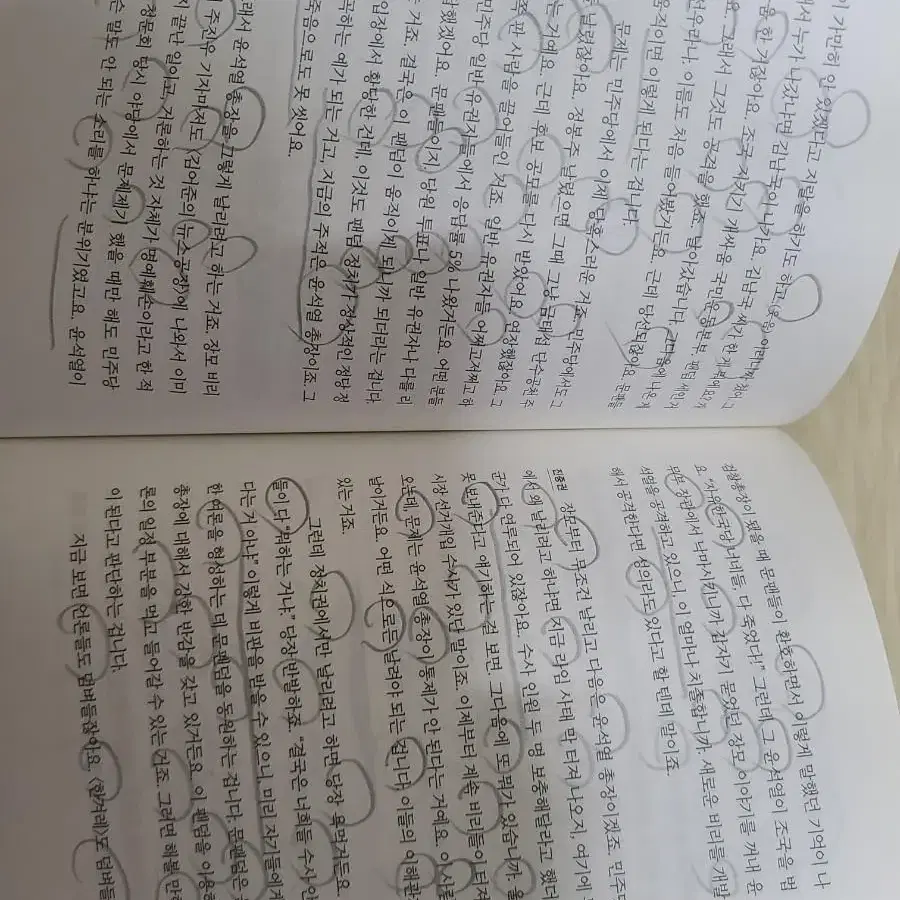 이 가만히 안 있겠다고 지랄을 하기도 하고
래서 누가 나갔냐면 김남국이 나가요. 김남국 씨가 한 게 뭐예요?
한 거잖아요. 조국 지키기 개싸움 국민운동본부
요. 그래서 그것도 공격을 했죠. 말이 갔습니다.
선우라나, 이름도 처음 들어봤거든요. 근데 당선되잖아요. 문팬들
움직이면 이렇게 된다는 겁니다.
문제는 민주당에서 이제 담호스러운 거죠. 민주당에서도 그
날렸잖아요. 정봉주 날렸으면 그때 그냥 금태섭 단수공천 주
는 거예요. 근데 후보 공모를 다시 받았어요. 안 했잖아요. 그
사람을 끌어들인 거죠. 일반 유권자들 어쩌고저쩌고 하
민주당 일반 유권자들에서 응답률 5% 나왔거든요. 어떤 분들
했겠어요. 문팬들이지. 당원 투표나 일반 유권자나 다를 리
거죠. 결국은 이 팬덤이 움직이게 되니까 되더라는 겁니다.
입장에서 황당한 건데, 이것도 팬덤 정치가 정상적인 정당 정
곡하는 예가 되는 거고, 지금의 주적은 윤석열 총장이죠. 그
줌으로도 못 씻어요.
래서 윤석열 총장을 그렇게 날리려고 하는 거죠. 장모 비리
주진우 기자마저도 〈김어준의 뉴스공장〉에 나와서 이미
끝난 일이고, 거론하는 것 자체가 명예훼손이라고 한 적
청문회 당시 야당에서 문제제기 했을 때만 해도 민주당
말도 안 되는 소리를 하냐는 분위기였고요. 윤석열이
검찰총장이 됐을 때 문팬들이 환호하면서 이렇게 말했던 기억이 나
요. “자유한국당 너네들, 다 죽었다!” 그런데 그 윤석열이 조국을 법
무부 장관에서 낙마시키니까 갑자기 묻었던 장모 이야기를 꺼내 윤
석열을 공격하고 있으니, 이 얼마나 치졸합니까. 새로운 비리를 개발
해서 공격한다면 성의라도 있다고 할 텐데 말이죠.
진중권 장모부터 무조건 날리고 다음은 윤석열 총장이겠죠. 민주당
에서 왜 날리려고 하냐면 지금 라임 사태 막 터져 나오지, 여기에
군가 다 연루되어 있잖아요. 수사 인원 두 명 보충해달라고 했더
못 보내준다고 얘기하는 걸 보면. 그다음에 또 뭐가 있습니까. 울
시장 선거개입 수사가 있단 말이죠. 이제부터 계속 비리들이 터져
오는데, 문제는 윤석열 총장이 통제가 안 된다는 거예요. 이 사람
날이거든요. 어떤 식으로든 날려야 되는 겁니다. 이들의 이해관
있는 거죠.
그런데 정치권에서만 날리려고 하면, 당장 욕먹거든요.
들이 다 “뭐하는 거냐.” 당장 반발하죠. “결국은 너희들 수사 안
다는 거 아냐.” 이렇게 비판을 받을 수 있으니 미리 자기들에게
한 여론을 형성하는 데 문팬덤을 동원하는 겁니다. 문팬덤은
총장에 대해서 강한 반감을 갖고 있거든요. 이 팬덤을 이용하
론의 일정 부분을 먹고 들어갈 수 있는 거죠. 그러면 해볼 만
이 된다고 판단하는 겁니다.
지금 보면 언론들도 덤벼들잖아요. 〈한겨레〉도 덤벼들